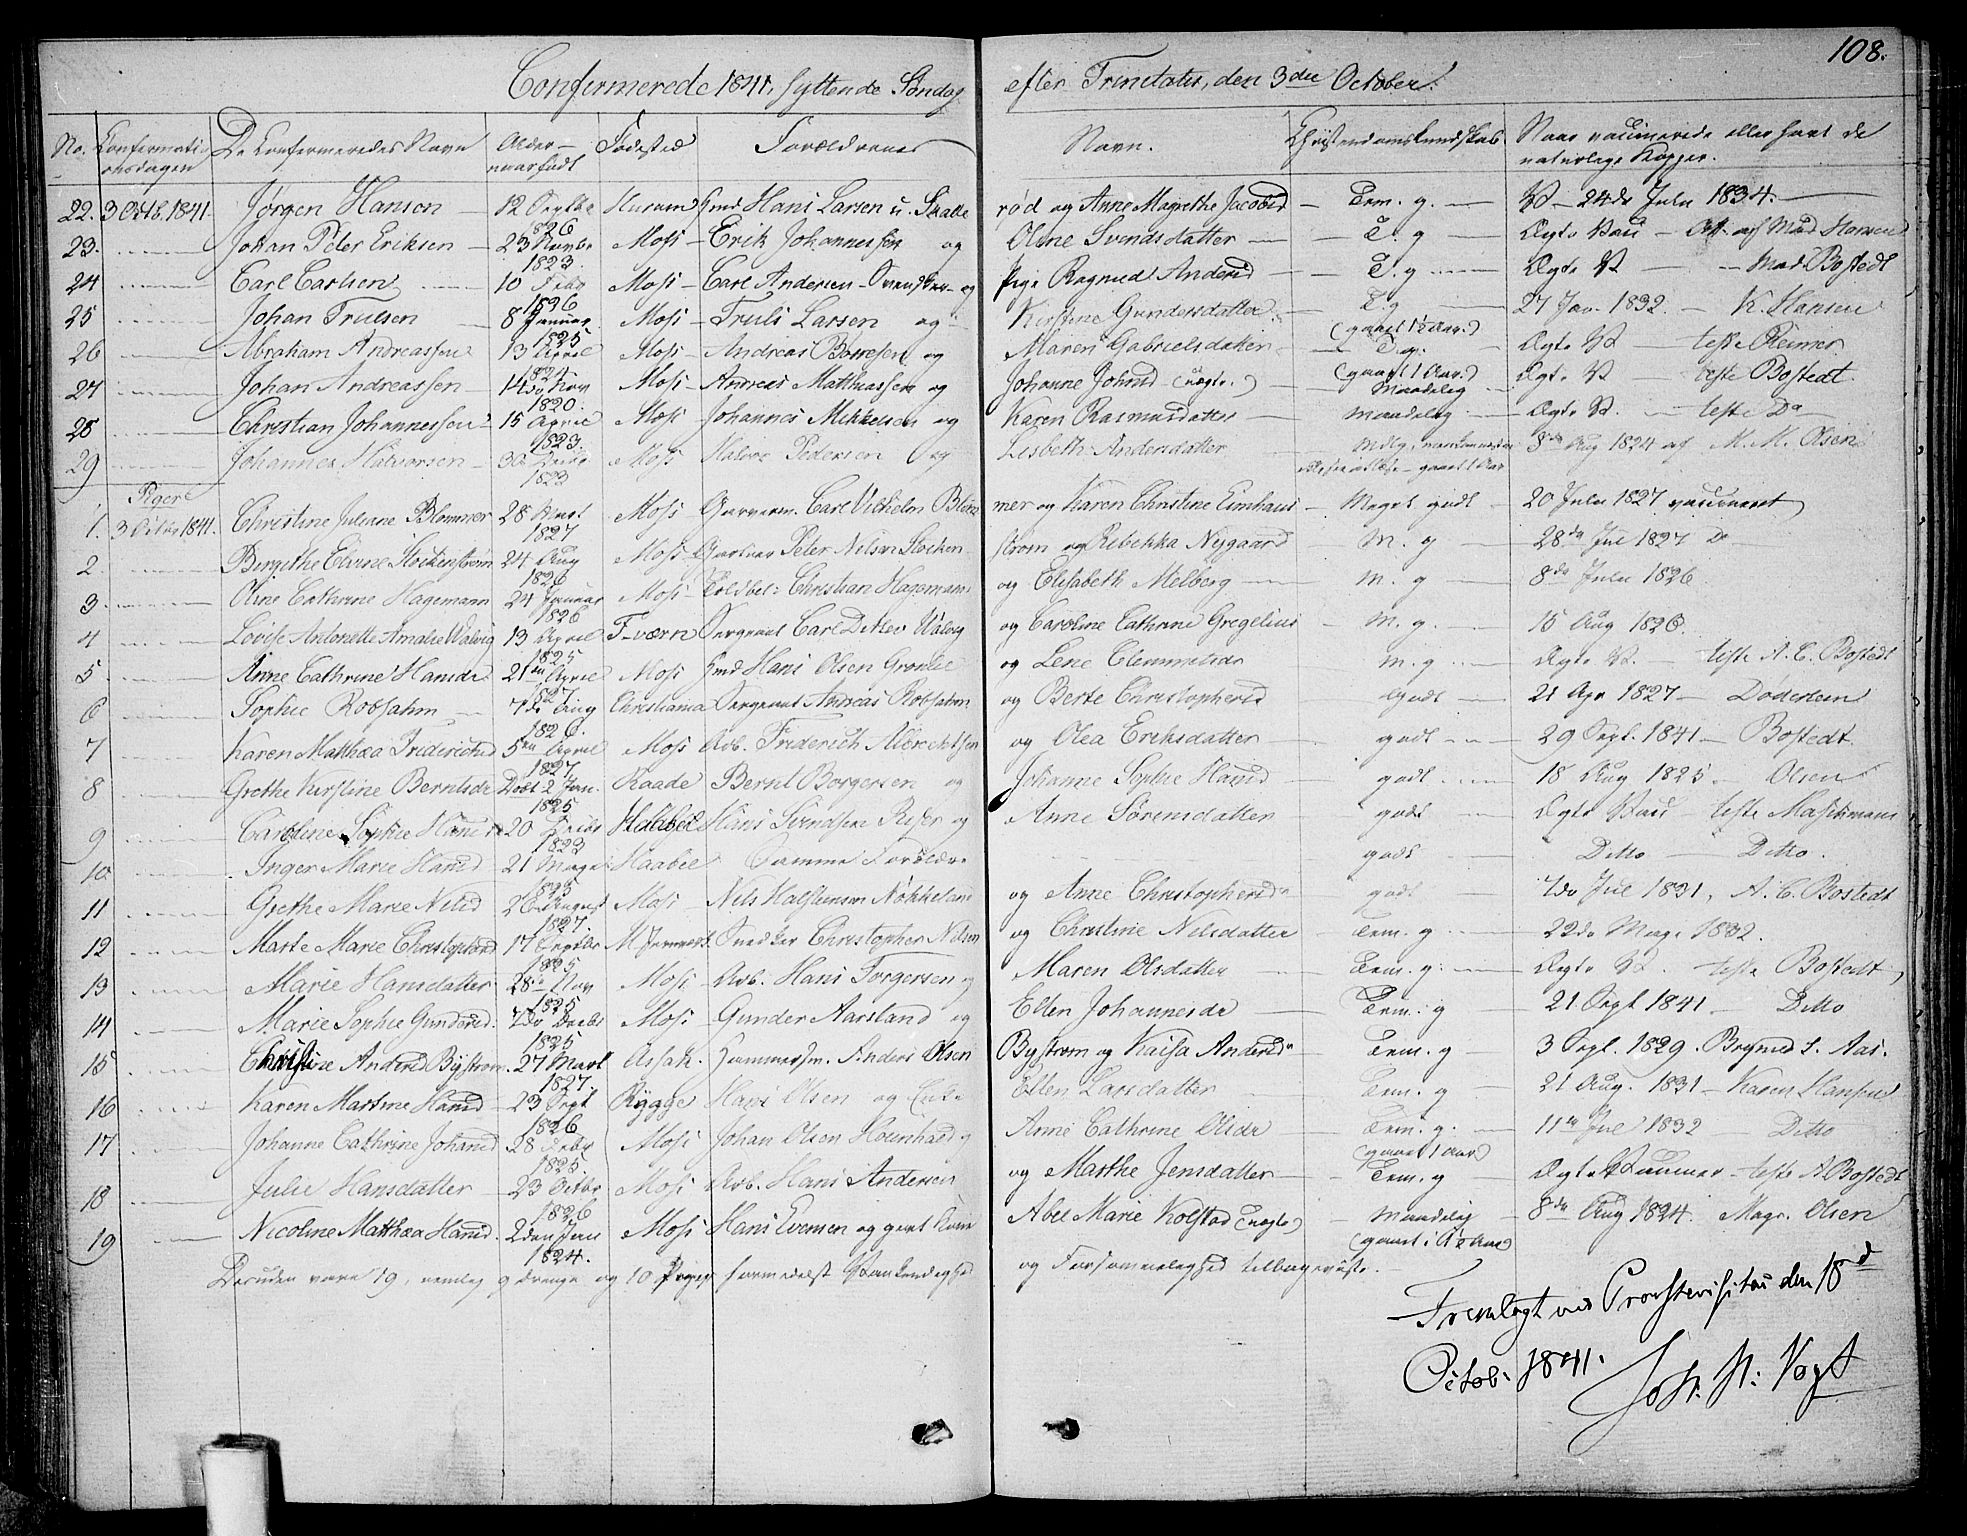 108.
Confirmerede 1841, syttende Søndag efter Trinitatis, den 3die October.
No. Confirmationsdagen De Confirmeredes Navn Alder naar født Fødested Forældrenes Navn. Christendomskundskab Naar vaccinerede eller havt de naturlige Kopper.
22. 3 Octb. 1841. Jørgen Hansen 12 Septbr 1826 Hurum Hans Larsen u. Skaderød og Anne Magrethe Jacobsd Tem. g. V. 24de Julii 1834.
23. Johan Peter Eriksen 23 Novbr 1823. Moss Erik Johannessen og Oline Svendsdatter T. g Ægte Vac Att. af Mad Hansen
24 Carl Carlsen 10 Febr 1826 Moss Carl Andersen Svensker og Pige Ragnild Andersd T. g Ægte V Mad. Bostedt
25 Johan Trulsen 8 Januar 1825 Moss Truls Larsen og Kirstine Gundersdatter T. g (gaaet 1½ Aar.) 27 Jan. 1832. K. Hansen
26 Abraham Andreassen 13 April 1824 Moss Andreas Borresen og Maren Gabrielsdatter T. g. (gaaet 1 Aar.) Ægte V teste Reimer
27 Johan Andreassen 14de Nov 1820. Moss Andreas Matthiassen og Johanne Johnsd (uægte.) Maadelig Ægte V teste Bostedt.
28 Christian Johannessen 15 April 1823. Moss Johannes Mikkelsen og Karen Rasmusdatter maadelig Ægte V. teste Do
29 Johannes Halvorsen 30 Decbr 1823 Moss Halvor Pedersen og Lisbeth Andersdatter Mdlg. gaaet 1 Aar 8de Aug 1824 af M. M. Olsen
Piger
1. 3 Octbr 1841. Christine Juliane Blommer 28 1827 Moss Garverm. Carl Vilhelm Blommer og Karen Christine Eimhaus Meget godt 20 Julii 1827 vaccineret
2 Bergithe Elvine Stockenstrøm 24 Aug 1826 Moss Peter Nilsen Stockenstrom og Rebekka Nygaard M. g 28de Jul 1827 Do
3. Oline Cathrine Hagemann 24 Januar 1826 Moss Christian Hagemann og Elisabeth Melberg m. g 8de Julii 1826.
4 Lovise Antonette Amalie Walvig 13 April 1825 F-værn Sergeant Carl Ditlev Walvig og Caroline Cathrine Gregelius m. g. 15 Aug 1826.
5 Anne Cathrine Hansdr 21de April 1827. Moss Hans Olsen Grønlie og Lene Clemmetsdr m. g Ægte V. teste A. C. Bostedt
6 Sophie Robsahm 7de Aug 1826. Christiania Sergeant Andreas Robsahm og Berte Christophersd Godt 21 Apr 1827 Døderlein
7 Karen Matthea Friderichsd 5te April 1827. Moss Arb. Friderich Albrechtsen og Olea Eriksdatter godt 29 Sept. 1841 Bostedt.
8 Grethe Kirstine Berntsdr Døbt 2 Jan. 1825 Raade Bernt Borgersen og Johanne Sophie Hansd godt 18 Aug 1825. Olsen
9 Caroline Sophie Hansdr 20 Decbr 1823 Haabøl Hans Svendsen Reser og Anne Sørensdatter godt Ægte Vac teste Maschmann
10 Inger Marie Hansd 21 1825 Haabøl Samme Forældre godt Ditto Ditto.
11 Grethe Marie Nilsd 26 August 1827. Moss Nils Halstensen Nøkkeland og Anne Christophersdr godt 7de Jul 1831, A. C. Bostedt
12 Marte Marie Christophersd 17 Septbr 1825 M Jernverk. Snedker Christopher Nilsen og Christine Nilsdatter Tem. g 22de 1832.
13 Marie Hansdatter 28de Nov 1825 Moss Arb. Hans Torgersen og Maren Olsdatter Tem. g. Ægte V. teste Bostedt,
14 Marie Sophie Gundersd. 7de Decbr 1825 Moss Gunder Aarsland og Ellen Johannesdr Tem. g 21 Sept 1841 Ditto
15 Christine Andersd Bystrøm. 27 Mart 1827. Assak. Hammersm. Anders Olsen Bystrøm og Kaisa Andersdr Tem. g 3 Sept. 1829.
16 Karen Martine Hansd 23 Sept 1826 Rygge Hans Olsen og Enke Ellen Larsdatter Tem. g. 21 Aug. 1831 Karen Hansen
17 Johanne Cathrine Johansd 28 Febr 1825 Moss Johan Olsen og Anne Cathrine Olsdr Tem. g. (gaaet 1 Aar) 11te Jul 1832 Ditto
18 Julie Hansdatter 23 Octbr 1826 Moss Arb. Hans Andersen og Marthe Jensdatter Tem. g Ægte Vacciner teste A Bostedt
19 Nicoline Matthea Hansd. 2den Jan 1824. Moss Hans Evensen og gavt Kone Abel Marie Kolstad (uægte) Maadelig (gaaet i 1½ Aar) 8de Aug 1824. Magr. Olsen
Desuden vare 19, nemlig 9 drenge og 10 Piger formedelst Vankundighed og Forsømmelighed tilbageviiste.
Fremlagt ved Provstevisitats den 18d
Octob. 1841. Joh. St. Vogt